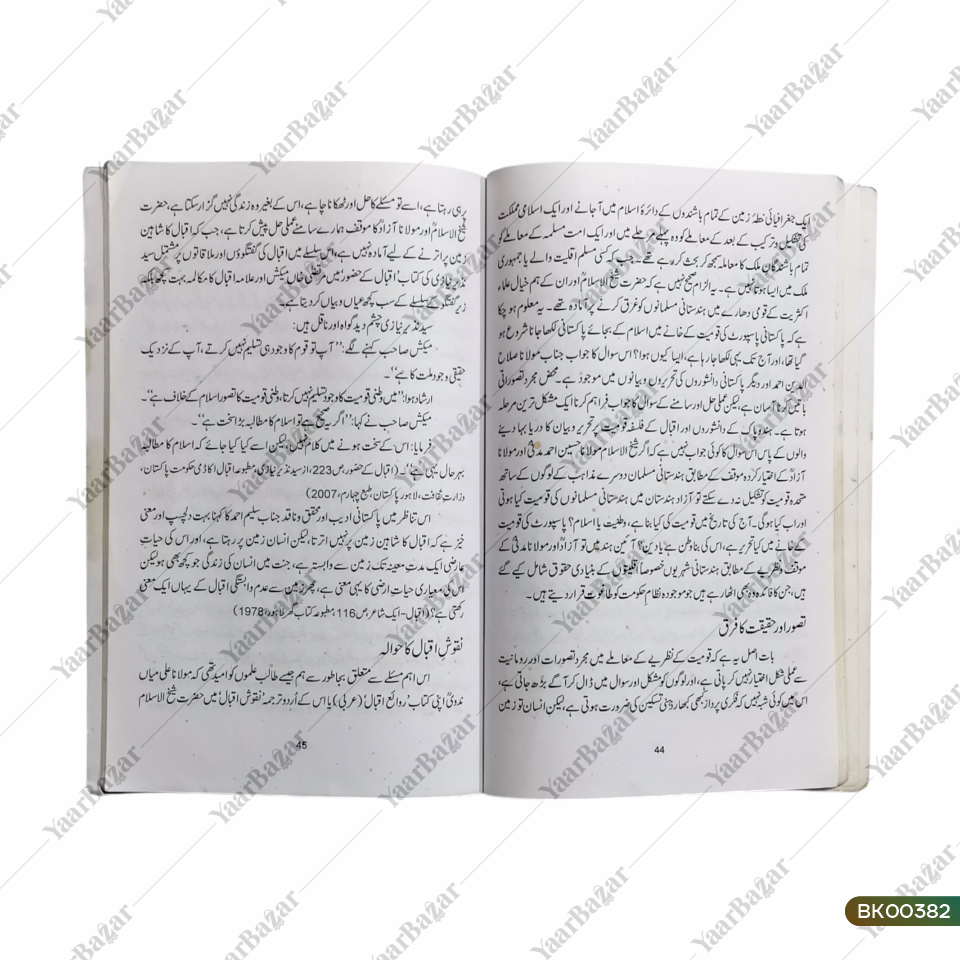 ایک جغرافیائی خطۂ زمین کے تمام باشندوں کے دائرۂ اسلام میں آ جانے اور ایک اسلامی مملکت
کی تشکیل و ترکیب کے بعد کے معاملے کو وہ پہلے مرحلے میں اور ایک امت مسلمہ کے معاملے کو
تمام باشندگان ملک کا معاملہ سمجھ کر بحث کر رہے تھے۔ جب کہ کسی مسلم اقلیت والے یا جمہوری
ملک میں ایسا ہوتا نہیں ہے۔ یہ الزام صحیح نہیں ہے کہ حضرت شیخ الاسلامؒ اور ان کے ہم خیال علماء
اکثریت کے قومی دھارے میں ہندستانی مسلمانوں کو غرق کرنے پر آمادہ تھے۔ یہ معلوم ہو چکا
ہے کہ پاکستانی پاسپورٹ کی قومیت کے خانے میں اسلام کے بجائے پاکستانی لکھا جانا شروع ہو
گیا تھا، اور آج تک یہی لکھا جا رہا ہے، ایسا کیوں ہوا؟ اس سوال کا جواب جناب مولانا صلاح
الدین احمد اور دیگر پاکستانی دانشوروں کی تحریروں و بیانوں میں موجود ہے۔ محض مجرد تصوراتی
باتیں کرنا آسان ہے، لیکن عملی حل اور سامنے کے سوال کا جواب فراہم کرنا ایک مشکل ترین مرحلہ
ہوتا ہے۔ ہند و پاک کے دانشوروں اور اقبال کے فلسفہ قومیت پر تحریر و بیان کا دریا بہا دینے
والوں کے پاس اس سوال کا کوئی جواب نہیں ہے کہ اگر شیخ الاسلام مولانا حسین احمد مدنیؒ اور مولانا
آزادؒ کے اختیار کردہ موقف کے مطابق ہندستانی مسلمان دوسرے مذاہب کے لوگوں کے ساتھ
متحدہ قومیت کی تشکیل نہ دے سکتے تو آزاد ہندستان میں ہندستانی مسلمانوں کی قومیت کیا ہوتی
اور اب کیا ہو گی۔ آج کی تاریخ میں قومیت کی کیا بنا ہے، وطنیت یا اسلام؟ پاسپورٹ کی قومیت
کے خانے میں کیا تحریر ہے، اس کی بنا وطن ہے یا دین؟ آئین ہند میں تو آزادؒ اور مولانا مدنیؒ کے
موقف و نظریے کے مطابق ہندستانی شہریوں خصوصاً اقلیتوں کے بنیادی حقوق شامل کیے گئے
ہیں، جن کا فائدہ وہ بھی اٹھا رہے ہیں جو موجودہ نظام حکومت کو طاغوت قرار دیتے ہیں۔
تصور اور حقیقت کا فرق
بات اصل یہ ہے کہ قومیت کے نظریے کے معاملے میں مجرد تصورات اور رومانیت
سے عملی شکل اختیار نہیں کر پاتی ہے، اور لوگوں کو مشکل اور سوال میں ڈال کر آگے بڑھ جاتی ہے،
اس میں کوئی شبہ نہیں کہ فکری پرواز کبھی کبھار ذہنی تسکین کی ضرورت ہوتی ہے، لیکن انسان تو زمین
44
پر ہی رہتا ہے، اسے تو مسئلے کا حل اور ٹھکانا چاہیے، اس کے بغیر وہ زندگی نہیں گزار سکتا ہے، حضرت
شیخ الاسلامؒ اور مولانا آزادؒ کا موقف ہمارے سامنے عملی حل پیش کرتا ہے، جب کہ اقبال کا شاہین
زمین پر اترنے کے لیے آمادہ نہیں ہے، اس سلسلے میں اقبال کی گفتگوؤں اور ملاقاتوں پر مشتمل سید
نذیر نیازی کی کتاب 'اقبال کے حضور' میں مرتضیٰ خاں میکش اور علامہ اقبال کا مکالمہ بہت کچھ بلکہ
زیر گفتگو کے سلسلے کے سب کچھ عیاں و بیاں کر دیتا ہے۔
سید نذیر نیازی چشم دید گواہ اور ناقل ہیں:
میکش صاحب کہنے لگے: ''آپ تو قوم کا وجود ہی تسلیم نہیں کرتے، آپ کے نزدیک
حقیقی وجود ملت کا ہے''۔
ارشاد ہوا: ''میں وطنی قومیت کا وجود تسلیم نہیں کرتا، وطنی قومیت کا تصور اسلام کے خلاف ہے''۔
میکش صاحب نے کہا: ''اگر یہ صحیح ہے تو اسلام کا مطالبہ بڑا سخت ہے''۔
فرمایا: اس کے سخت ہونے میں کلام نہیں، لیکن اسے کیا کیا جائے کہ اسلام کا مطالبہ
بہر حال یہی ہے''۔ (اقبال کے حضور، ص 223، از سید نذیر نیازی، مطبوعہ اقبال اکاڈمی حکومت پاکستان،
وزارت ثقافت، لاہور پاکستان، طبع چہارم، 2007)
اس تناظر میں پاکستانی ادیب اور محقق و ناقد جناب سلیم احمد کا کہنا بہت دلچسپ اور معنی
خیز ہے کہ اقبال کا شاہین زمین پر نہیں اترتا، لیکن انسان زمین پر رہتا ہے، اور اس کی حیاتِ
عارضی ایک مدت معینہ تک زمین سے وابستہ ہے، جنت میں انسان کی زندگی جو کچھ بھی ہو لیکن
اس کی معیاری حیات ارضی کا یہی معنی ہے، پھر زمین سے عدم وابستگی اقبال کے یہاں ایک معنی
رکھتی ہے؟ (اقبال-ایک شاعر، ص 116، مطبوعہ کتاب گھر لاہور، 1978)
نقوش اقبال کا حوالہ
اس اہم مسئلے سے متعلق بجا طور سے ہم جیسے طالب علموں کو امید تھی کہ مولانا علی میاں
ندویؒ اپنی کتاب 'روائع اقبال' (عربی) یا اس کے اُردو ترجمہ 'نقوش اقبال' میں حضرت شیخ الاسلام
45
BK00382
YaarBazar